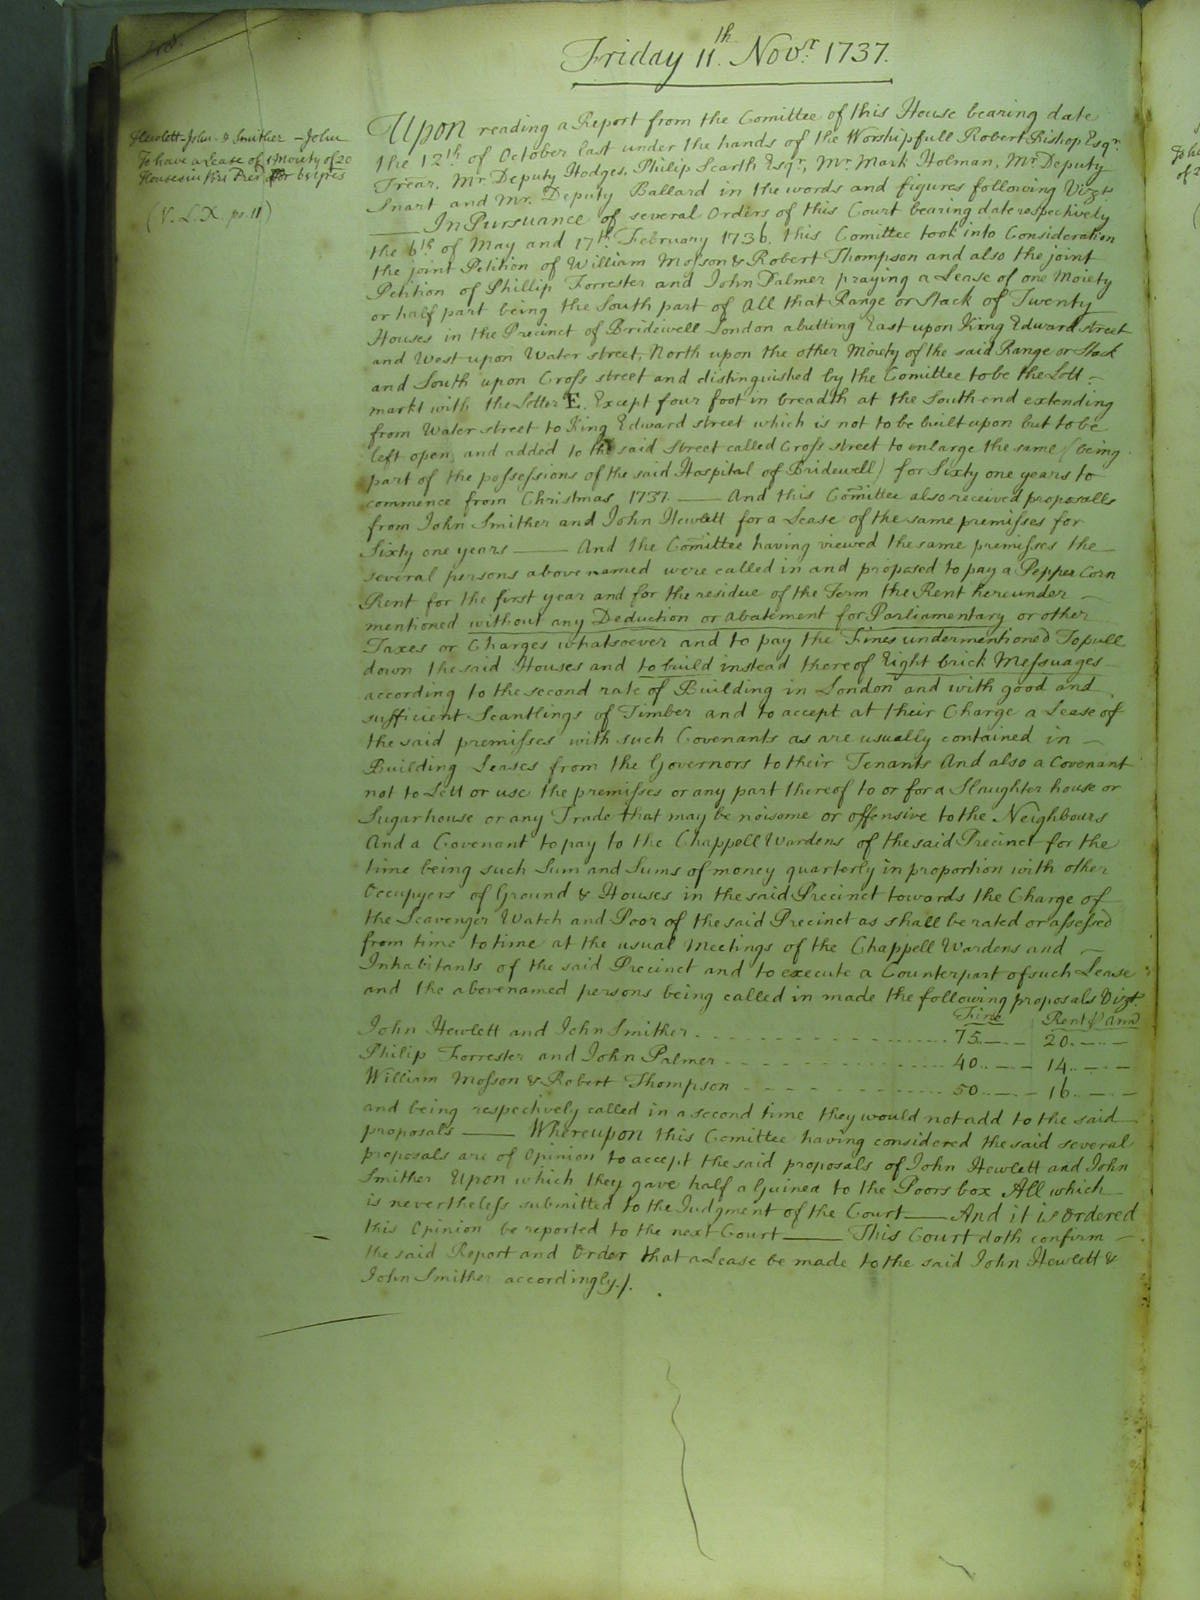 Friday 11th. Novr. 1737.
Hewlett - John & Smither - John
To have a Lease of 1 Moiety of 20
Houses in Bri Prec for 61 yres
(V. L. X. pa. 11)
Upon reading a Report from the Comittee of this House bearing date
the 12th of October last under the hands of the Worshipfull Robert Bishop Esqr.
Trẽar, Mr Deputy Hodges, Philip Scarth Esqr, Mr. Mark Holman, Mr Deputy
Snart and Mr. Deputy Ballard in the words and figures following Vizt.
In Pursuance of several Orders of this Court bearing date respectively
the 6th of May and 17th February 1736. this Comittee took into Consideration
the joint Petition of William Mosson & Robert Thompson and also the joint
Petition of Phillip Forrester and John Palmer praying a Lease of one Moiety
or half part being the South part of All that Range or Stack of Twenty
Houses in the Precinct of Bridewell London abutting East upon King Edward street
and West upon Water street, North upon the other Moiety of the said Range or Stack
and South upon Cross street and distinguished by the Comittee to be the Lott
markt with the Letter E. Except four foot in breadth at the South end extending
from Water street to King Edward street which is not to be built upon but to be
left open and added to the said Street called Cross street to enlarge the same (being
part of the possessions of the said Hospital of Bridewell) for Sixty one years to
commence from Christmas 1737. —— And this Comittee also received proposalls
from John Smither and John Hewlett for a Lease of the same premisses for
Sixty one years —— And the Comittee having viewed the same premisses the
several persons above named were called in and proposed to pay a Pepper Corn
Rent for the first year and for the residue of the Term the Rent hereunder
mentioned without any Deduction or abatement for Parliamentary or other
Taxes or Charges whatsoever and to pay the Fines undermentioned To pull
down the said Houses and to build instead thereof Eight brick Messuages
according to the second rate of Building in London and with good and
sufficient Scantlings of Timber and to accept at their Charge a Lease of
the said premisses with such Covenants as are usually contained in
Building Leases from the Governors to their Tenants And also a Covenant
not to Lett or use the premisses or any part thereof to or for a Slaughter house or
Sugarhouse or any Trade that may be noisome or offensive to the Neighbours
And a Covenant to pay to the Chappell Wardens of the said Precinct for the
time being such Sum and Sums of money quarterly in proportion with other
Occupyers of Ground & Houses in the said Precinct towards the Charge of
the Scavenger Watch and Poor of the said Precinct as shall be rated or assessed
from time to time at the usual Meetings of the Chappell Wardens and
Inhabitants of the said Precinct and to execute a Counterpart of such Lease
and the abovenamed persons being called in made the following proposals Vizt.
Fine Rent ꝑ Ann̄
John Hewlett and John Smither - - - 75..—..— 20..—..—
Philip Forrester and John Palmer - - - 40..—..— 14..—..—
William Mosson & Robert Thompson - - - 50..—..— 16..—..—
and being respectively called in a second time they would not add to the said
proposals —— Whereupon this Comittee having considered the said several
proposals are of Opinion to accept the said proposals of John Hewlett and John
Smither Upon which they gave half a Guinea to the Poors box All which
is nevertheless submitted to the Judgment of the Court —— And it is Ordered
this Opinion be reported to the next Court —— This Court doth confirm
the said Report and Order that a Lease be made to the said John Hewlett &
John Smither accordingly./.